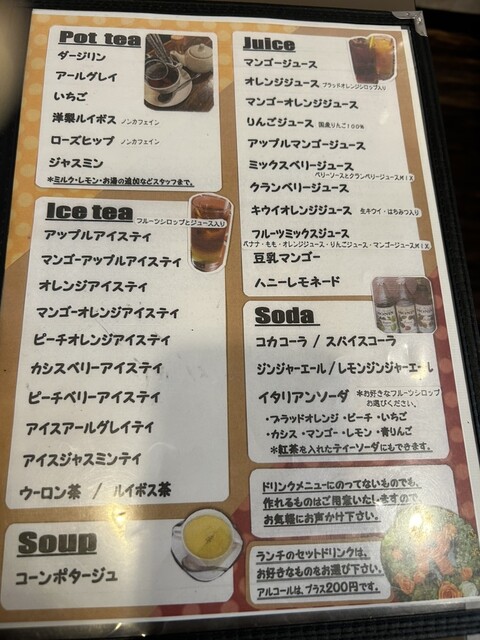 Pot tea
ダージリン
アールグレイ
いちご
洋梨ルイボス ノンカフェイン
ローズヒップ ノンカフェイン
ジャスミン
*ミルク・レモン・お湯の追加などスタッフまで。
Ice tea
フルーツシロップとジュース入り
アップルアイスティ
マンゴーアップルアイスティ
オレンジアイスティ
マンゴーオレンジアイスティ
ピーチオレンジアイスティ
カシスベリーアイスティ
ピーチベリーアイスティ
アイスアールグレイティ
アイスジャスミンティ
ウーロン茶 / ルイボス茶
Soup
コーンポタージュ
Juice
マンゴージュース
オレンジジュース ブラッドオレンジシロップ入り
マンゴーオレンジジュース
りんごジュース 国産りんご100%
アップルマンゴージュース
ミックスベリージュース
ベリーソースとクランベリージュースMIX
クランベリージュース
キウイオレンジジュース 生キウイ・はちみつ入り
フルーツミックスジュース
バナナ・もも・オレンジジュース・りんごジュース・マンゴージュースMIX
豆乳マンゴー
ハニーレモネード
Soda
コカコーラ / スパイスコーラ
ジンジャーエール/レモンジンジャーエール
イタリアンソーダ *お好きなフルーツシロップ
お選びください。
・ブラッドオレンジ・ピーチ・いちご
・カシス・マンゴー・レモン・青りんご
*紅茶を入れたティーソーダにもできます。
ドリンクメニューにのってないものでも、
作れるものはご用意いたしますので、
お気軽にお声かけ下さい。
ランチのセットドリンクは、
お好きなものをお選び下さい。
アルコールは、プラス200円です。